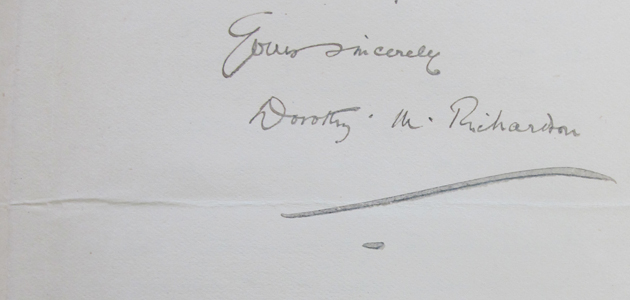 Yours sincerely
Dorothy. M. Richardson